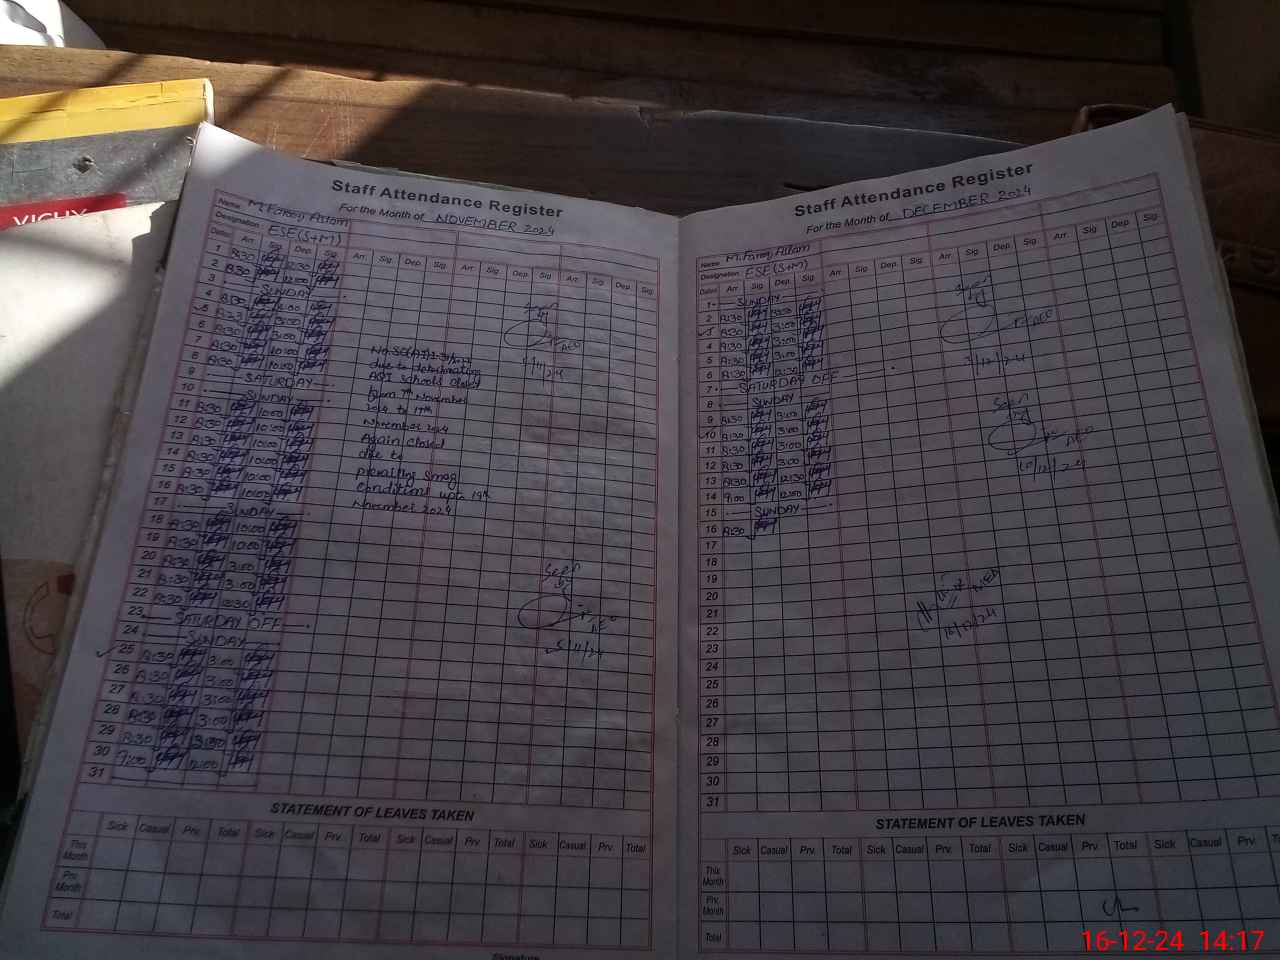 VICHY
Staff Attendance Register
For the Month of NOVEMBER 2024
Name M. Farooq Aslam
Designation ESE(S+M)
Dates Arr. Sig. Dep. Sig. Arr. Sig. Dep. Sig. Arr. Sig. Dep. Sig. Arr. Sig. Dep. Sig.
1 8:30 12:30
2 8:30 12:00
3 SUNDAY
4 8:30
5 8:30
6 8:30
7 8:30 10:00
8 8:30 10:00
9 SATURDAY
10 SUNDAY
11 8:30 10:00
12 8:30 10:00
13 8:30 10:00
14 8:30 10:00
15 8:30 10:00
16 8:30 10:00
17 SUNDAY
18 8:30 10:00
19 8:30 10:00
20 8:30 3:00
21 8:30 3:00
22 8:30 12:30
23 SATURDAY OFF
24 SUNDAY
25 8:30 3:00
26 8:30 3:00
27 8:30 3:00
28 8:30 3:00
29 8:30
30 9:00 12:00
31
due to
All Schools closed
from 7th November
2024 to 17th
November 2024
Again closed
due to
prevailing Smog
Conditions upto 19th
November 2024
Seen
AEO
Seen
AEO
STATEMENT OF LEAVES TAKEN
Sick Casual Prv. Total Sick Casual Prv. Total Sick Casual Prv. Total Sick Casual Prv. Total
This Month
Prv. Month
Total
Signature
Staff Attendance Register
For the Month of DECEMBER 2024
Name M. Farooq Aslam
Designation ESE(S+M)
Dates Arr. Sig. Dep. Sig. Arr. Sig. Dep. Sig. Arr. Sig. Dep. Sig. Arr. Sig. Dep. Sig.
1 SUNDAY
2 8:30 3:00
3 8:30 3:00
4 8:30 3:00
5 8:30 3:00
6 8:30 12:30
7 SATURDAY OFF
8 SUNDAY
9 8:30 3:00
10 8:30 3:00
11 8:30 3:00
12 8:30 3:00
13 8:30 12:30
14 9:00 12:00
15 SUNDAY
16 8:30
17
18
19
20
21
22
23
24
25
26
27
28
29
30
31
Seen
AEO
3/12/24
Seen
AEO
10/12/24
16/12/24
STATEMENT OF LEAVES TAKEN
Sick Casual Prv. Total Sick Casual Prv. Total Sick Casual Prv. Total Sick Casual Prv. Total
This Month
Prv. Month
Total
16-12-24 14:17